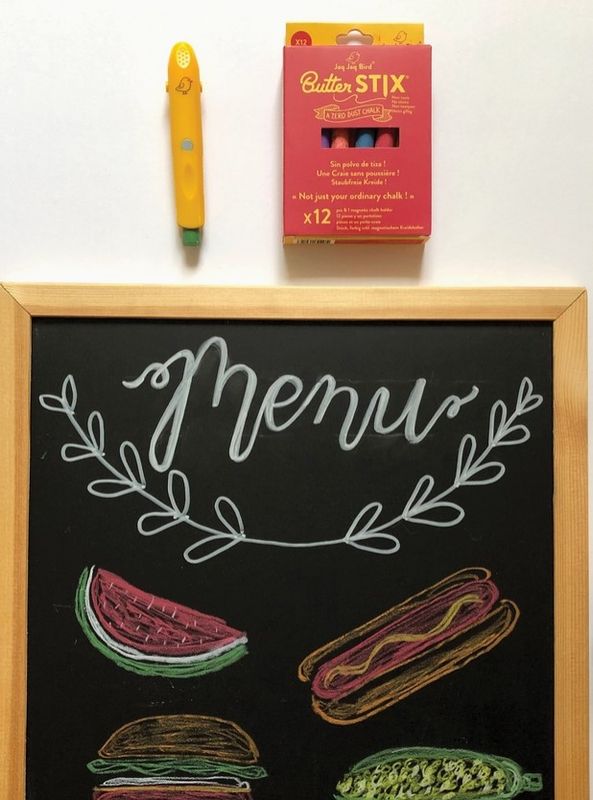 X12
Jaq Jaq Bird
Butter STIX
A ZERO DUST CHALK
Sin polvo de tiza !
Une Craie sans poussière !
Staubfreie Kreide !
« Not just your ordinary chalk ! »
x12
pcs & 1 magnetic chalk holder
Menu